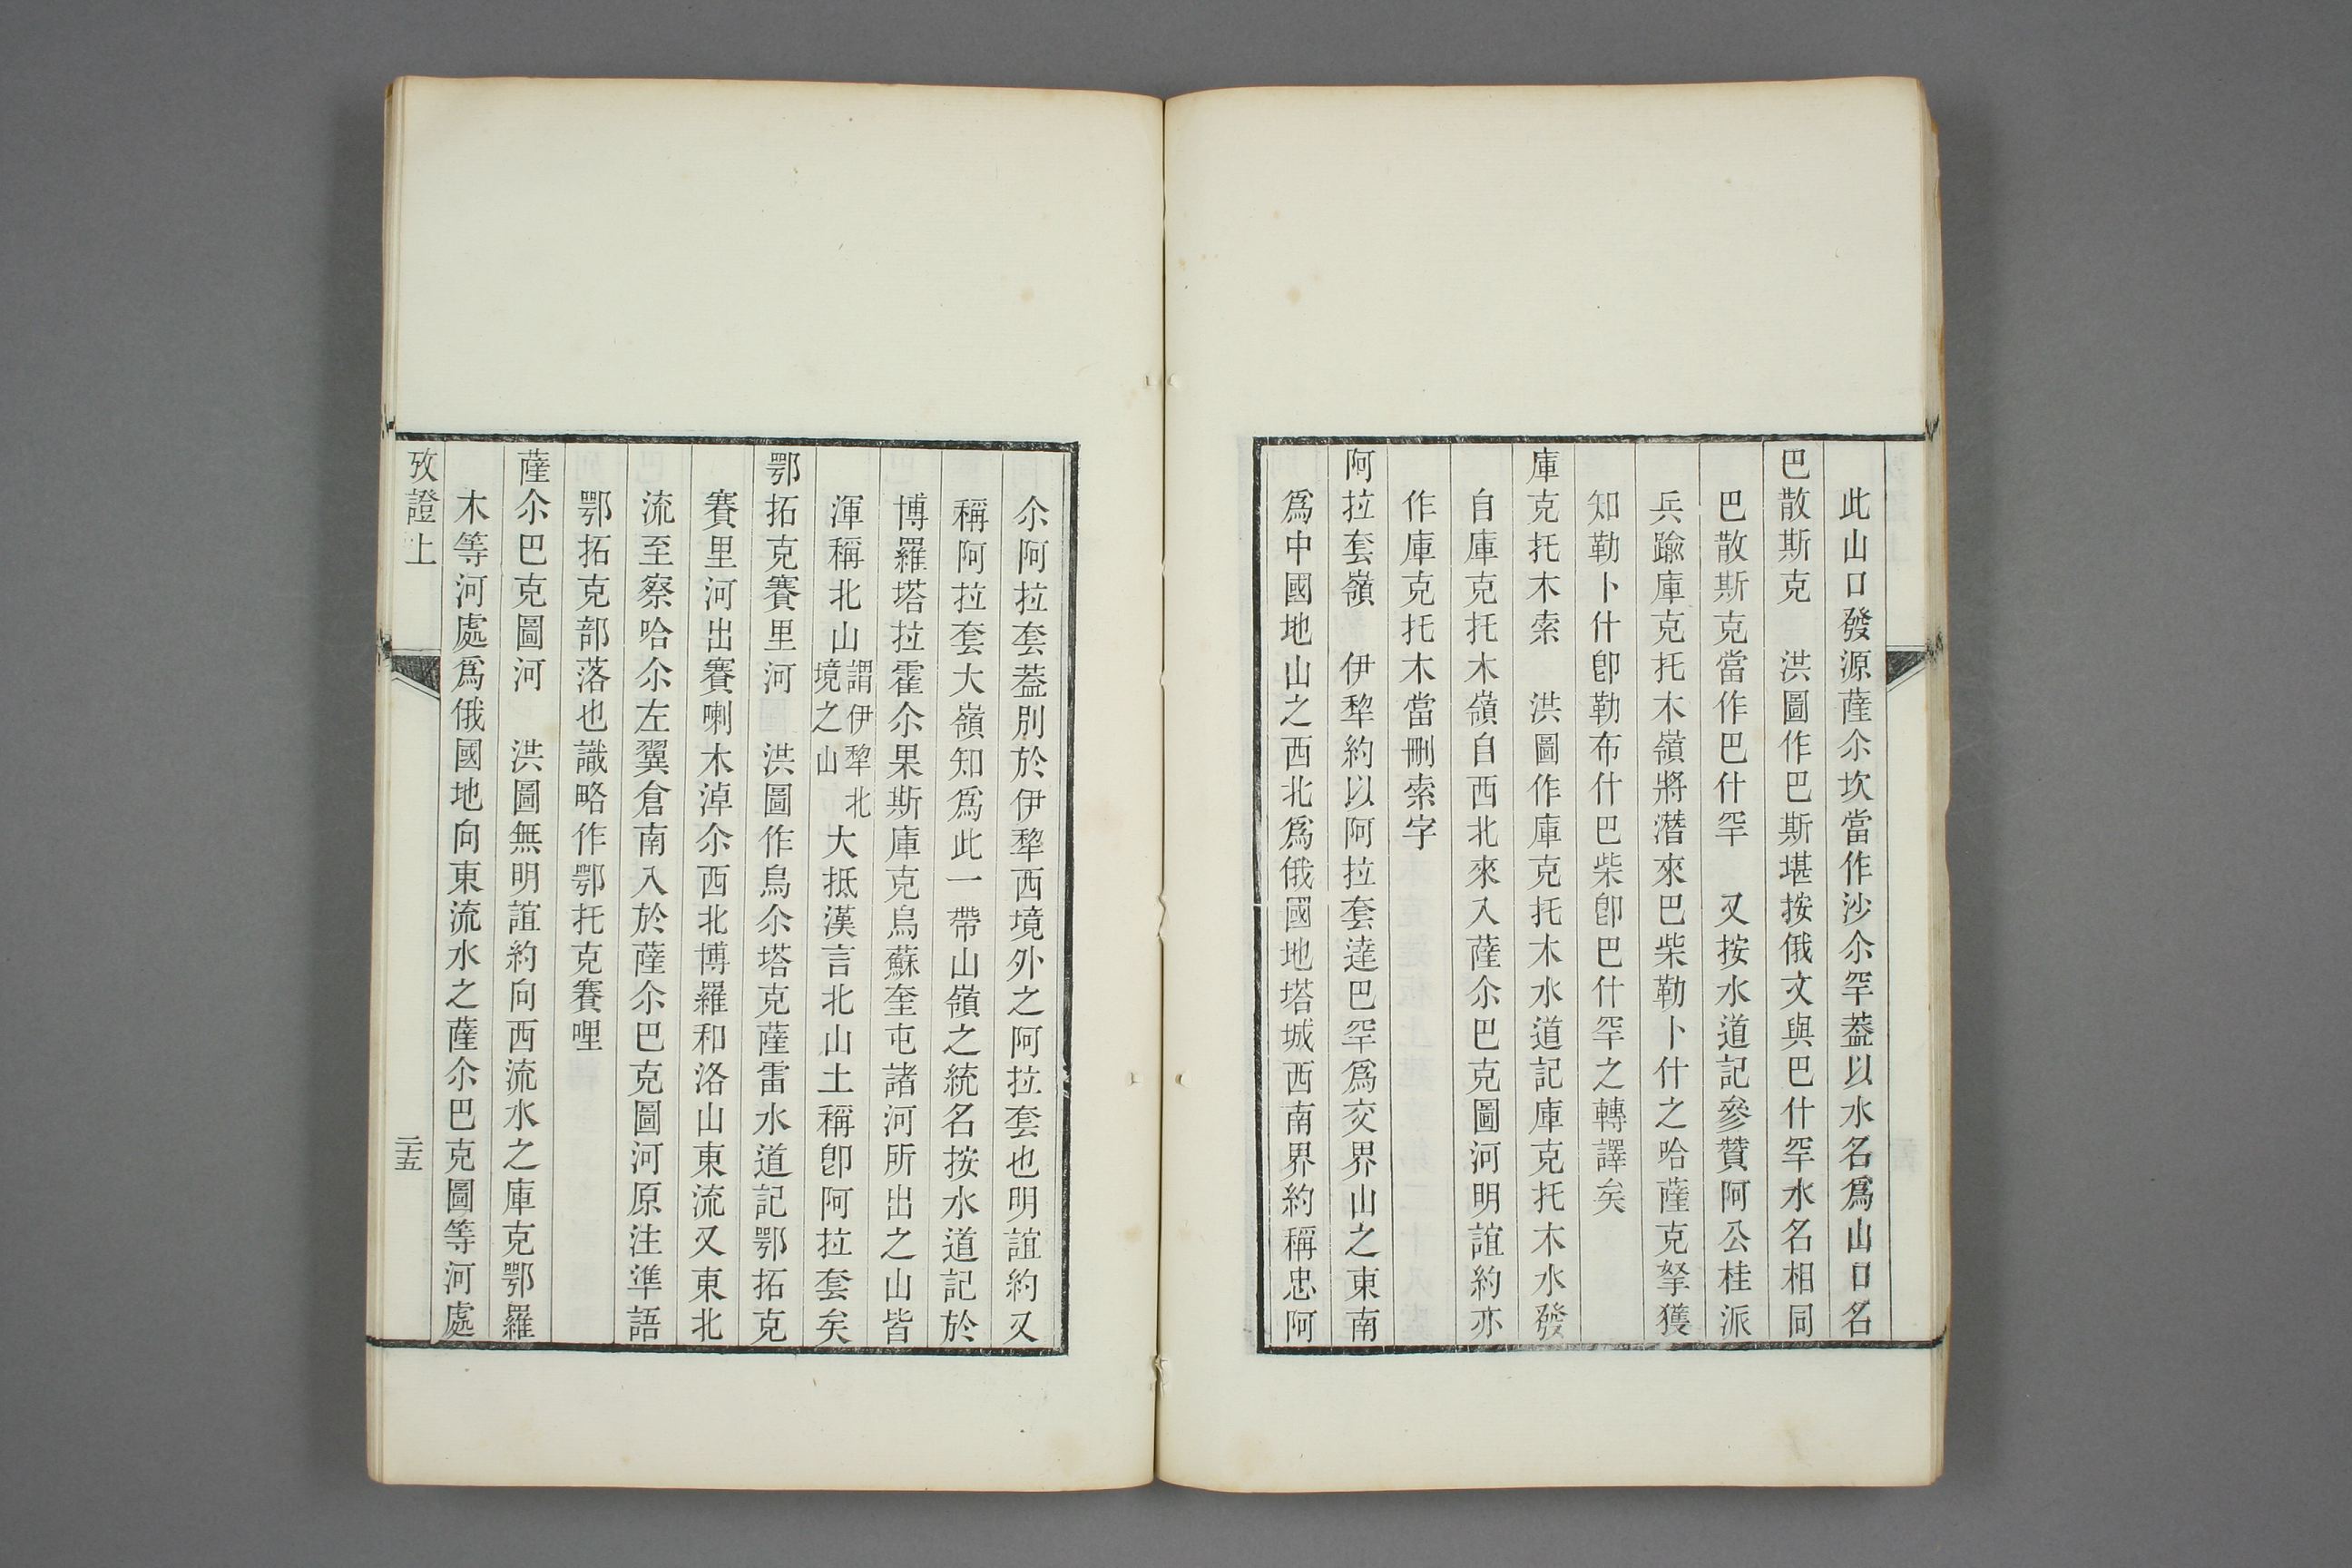 此山口發源薩尒坎當作沙尒罕葢以水名爲山口名
巴散斯克　洪圖作巴斯堪按俄文與巴什罕水名相同
巴散斯克當作巴什罕　又按水道記參贊阿公桂派
兵踰庫克托木嶺將潛來巴柴勒卜什之哈薩克拏獲
知勒卜什卽勒布什巴柴卽巴什罕之轉譯矣
庫克托木索　洪圖作庫克托木水道記庫克托木水發
自庫克托木嶺自西北來入薩尒巴克圖河明誼約亦
作庫克托木當刪索字
阿拉套嶺　伊犂約以阿拉套達巴罕爲交界山之東南
爲中國地山之西北爲俄國地塔城西南界約稱忠阿
尒阿拉套葢別於伊犂西境外之阿拉套也明誼約又
稱阿拉套大嶺知爲此一帶山嶺之統名按水道記於
博羅塔拉霍尒果斯庫克烏蘇奎屯諸河所出之山皆
渾稱北山謂伊犂北境之山大抵漢言北山土稱卽阿拉套矣
鄂拓克賽里河　洪圖作烏尒塔克薩雷水道記鄂拓克
賽里河出賽喇木淖尒西北博羅和洛山東流又東北
流至察哈尒左翼倉南入於薩尒巴克圖河原注準語
鄂拓克部落也識略作鄂托克賽哩
薩尒巴克圖河　洪圖無明誼約向西流水之庫克鄂羅
木等河處爲俄國地向東流水之薩尒巴克圖等河處
攷證上
二十五